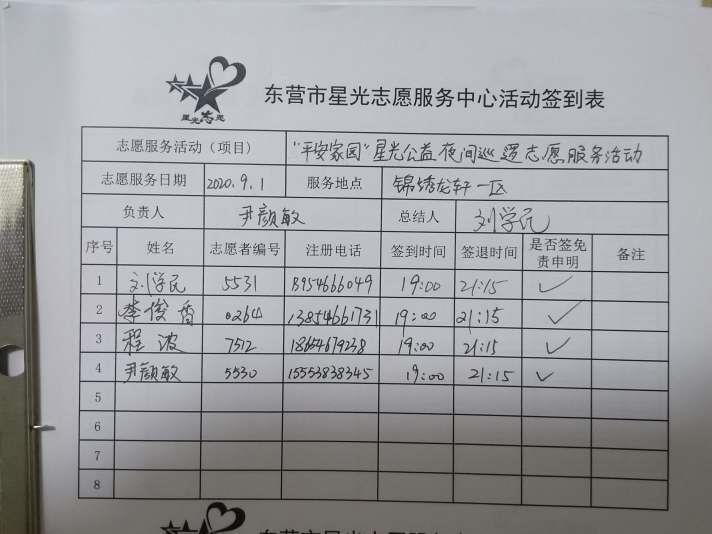 星光志愿
东营市星光志愿服务中心活动签到表
志愿服务活动（项目） "平安家园"星光公益夜间巡逻志愿服务活动
志愿服务日期 2020.9.1 服务地点 锦绣龙轩一区
负责人 尹颜敏 总结人 刘学民
序号 姓名 志愿者编号 注册电话 签到时间 签退时间 是否签免责申明 备注
1 刘学民 5531 13954666049 19:00 21:15 ✓
2 李俊香 0264 13854661731 19:00 21:15 ✓
3 程波 7512 18654679238 19:00 21:15 ✓
4 尹颜敏 5530 15553838345 19:00 21:15 ✓
5
6
7
8